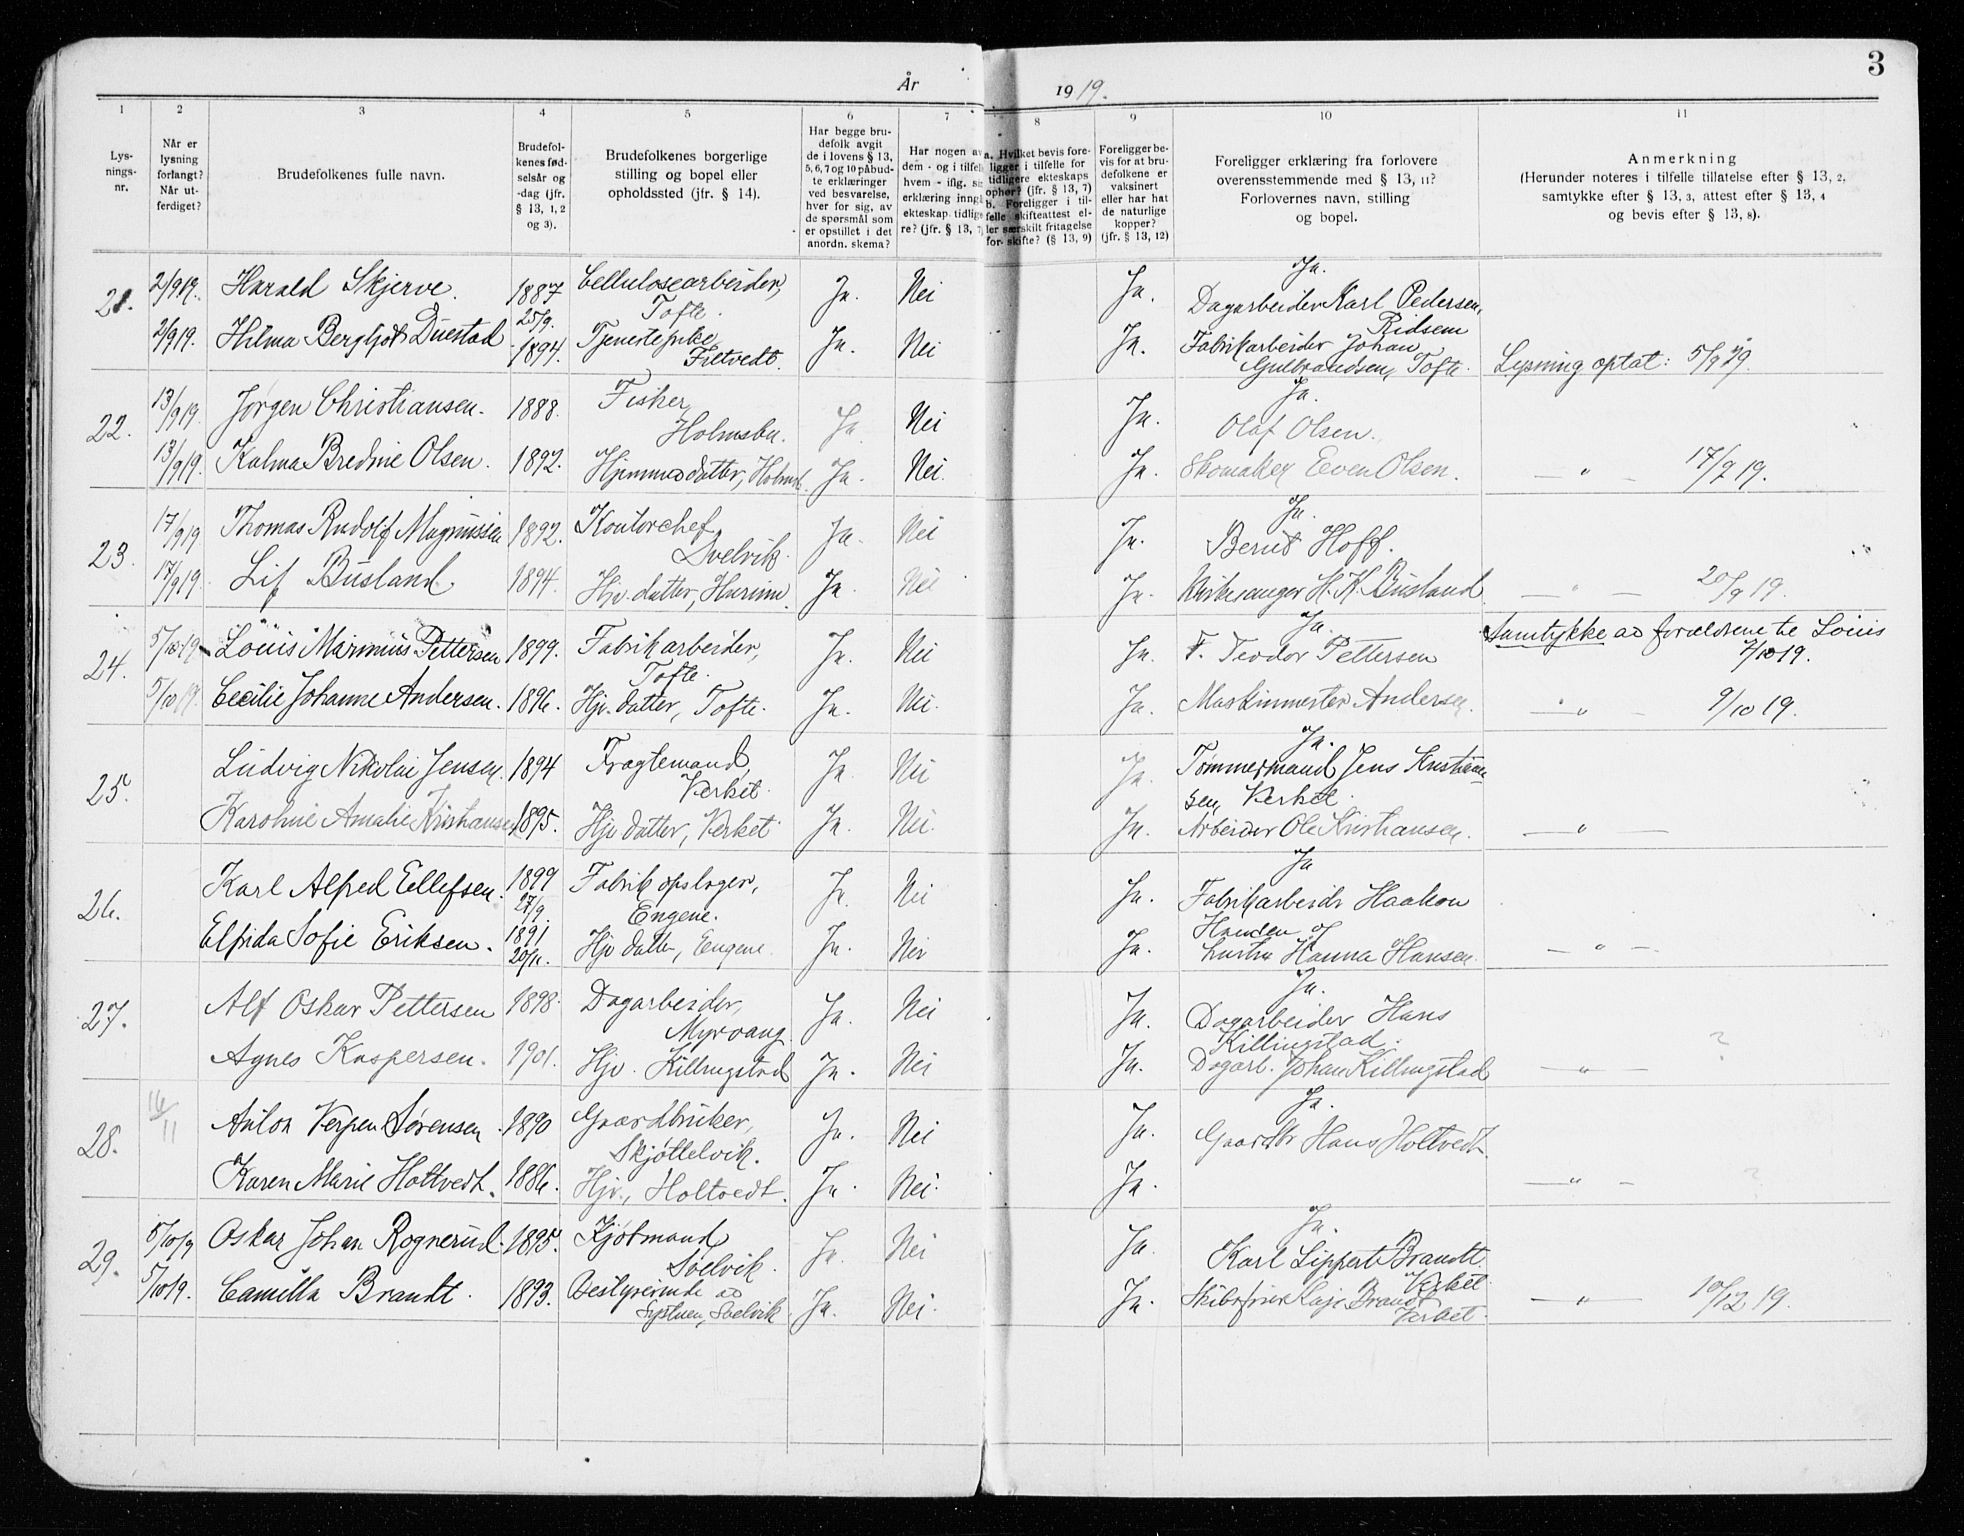 3
År 1919.
1 2 3 4 5 6 7 8 9 10 11
Lys-
nings-
nr.
Når er
lysning
forlangt?
Når ut-
ferdiget?
Brudefolkenes fulle navn.
Brudefol-
kenes fød-
selsår og
-dag (jfr.
§ 13, 1, 2
og 3).
Brudefolkenes borgerlige
stilling og bopel eller
opholdssted (jfr. § 14).
Har begge bru-
defolk avgit
de i lovens § 13,
5, 6, 7 og 10 påbud-
te erklæringer
ved besvarelse,
hver for sig, av
de spørsmål som
er opstillet i det
anordn. skema?
Har nogen av
dem - og i tilfelle
hvem - iflg. si
erklæring inngå
ekteskap tidlige
re? (jfr. § 13, 7)
a. Hvilket bevis fore-
ligger i tilfelle for
tidligere ekteskaps
ophør? (jfr. § 13, 7)
b. Foreligger i til-
felle skifteattest el-
ler særskilt fritagelse
for skifte? (§ 13, 9)
Foreligger be-
vis for at bru-
defolkene er
vaksinert
eller har hat
de naturlige
kopper?
(jfr. § 13, 12)
Foreligger erklæring fra forlovere
overensstemmende med § 13, 11?
Forlovernes navn, stilling
og bopel.
Anmerkning
(Herunder noteres i tilfelle tillatelse efter § 13, 2,
samtykke efter § 13, 3, attest efter § 13, 4
og bevis efter § 13, 8).
21. 2/9 19. Harald Skjerve. 1887 25/9. Cellulosearbeider, Tofte. Ja. Nei Ja. Ja. Dagarbeider Karl Pedersen,
2/9 19. Hilma Bergljot Duestad 1894. Tjenestepike, Fretvedt. Ja. Nei Ja. Fabrikarbeider Johan Gulbrandsen, Tofte. Lysning optat: 5/9 19.
22. 13/9 19. Jørgen Christiansen. 1888. Fisker, Holmsbu. Ja Nei Ja. Ja. Olaf Olsen.
13/9 19. Kalma Bredine Olsen. 1892. Hjemmedatter, Ja. Nei. Ja. Skomaker Even Olsen. — " — 17/9 19.
23. 17/9 19 Thomas Rudolf Magnussen 1892. Kontorchef, Svelvik. Ja. Nei Ja. Ja. Bernt Hoff.
17/9 19. Lif Busland 1894. Hjv. datter, Hurum. Ja. Nei Ja. Kirkesanger H. K. Busland — " — 20/9 19.
24. 5/10 19 Louis Marinius Pettersen 1899. Fabrikarbeider, Tofte. Ja. Nei Ja. Ja. F. Teodor Pettersen Samtykke av forældrene til Louis 7/10 19.
5/10 19. Cecilie Johanne Andersen. 1896. Hjv. datter, Tofte. Ja. Nei. Ja. Maskinmester Andersen. — " — 9/10 19.
25. Ludvig Nikolai Jensen. 1894 Fragtemand, Verket. Ja. Nei Ja. Ja. Tømmermand Jens Kristian-
sen, Verket.
Karoline Amalie Kristiansen 1895. Hjv datter, Verket. Ja. Nei. Ja. Arbeider Ole Kristiansen. — " —
26. Karl Alfred Ellefsen. 1899 27/9. Fabrikopslager, Engene. Ja. Nei Ja. Ja Fabrikarbeider Haakon
Elfrida Sofie Eriksen. 1891 20/11. Hjv datter, Engene. Ja. Nei Ja. Hansen og Hanna Hansen. — " —
27. Alf Oskar Pettersen 1898. Dagarbeider, Myrvang. Ja. Nei Ja. Ja. Dagarbeider Hans Killingstad.
Agnes Kaspersen. 1901. Hjv. Killingstad Ja. Nei Ja. Dagarb. Johan Killingstad — " — ?
28. 16/11 Anton Verpen Sørensen. 1890 Gaardbruker, Skjøttelvik. Ja. Nei Ja. Ja. Gaardbr Hans Holtvedt.
Karen Marie Holtvedt. 1886. Hjv., Holtvedt. Ja. Nei. Ja. — " — ?
29. 5/10 19 Oskar Johan Rognerud. 1895. Kjøbmand Svelvik. Ja. Nei Ja. Ja. Karl Lippert Brandt. Verket.
5/10 19. Camilla Brandt. 1893. Bestyrerinde av Systuen, Svelvik Ja. Nei. Ja. Kaje Brandt Verket. — " — 10/12 19.